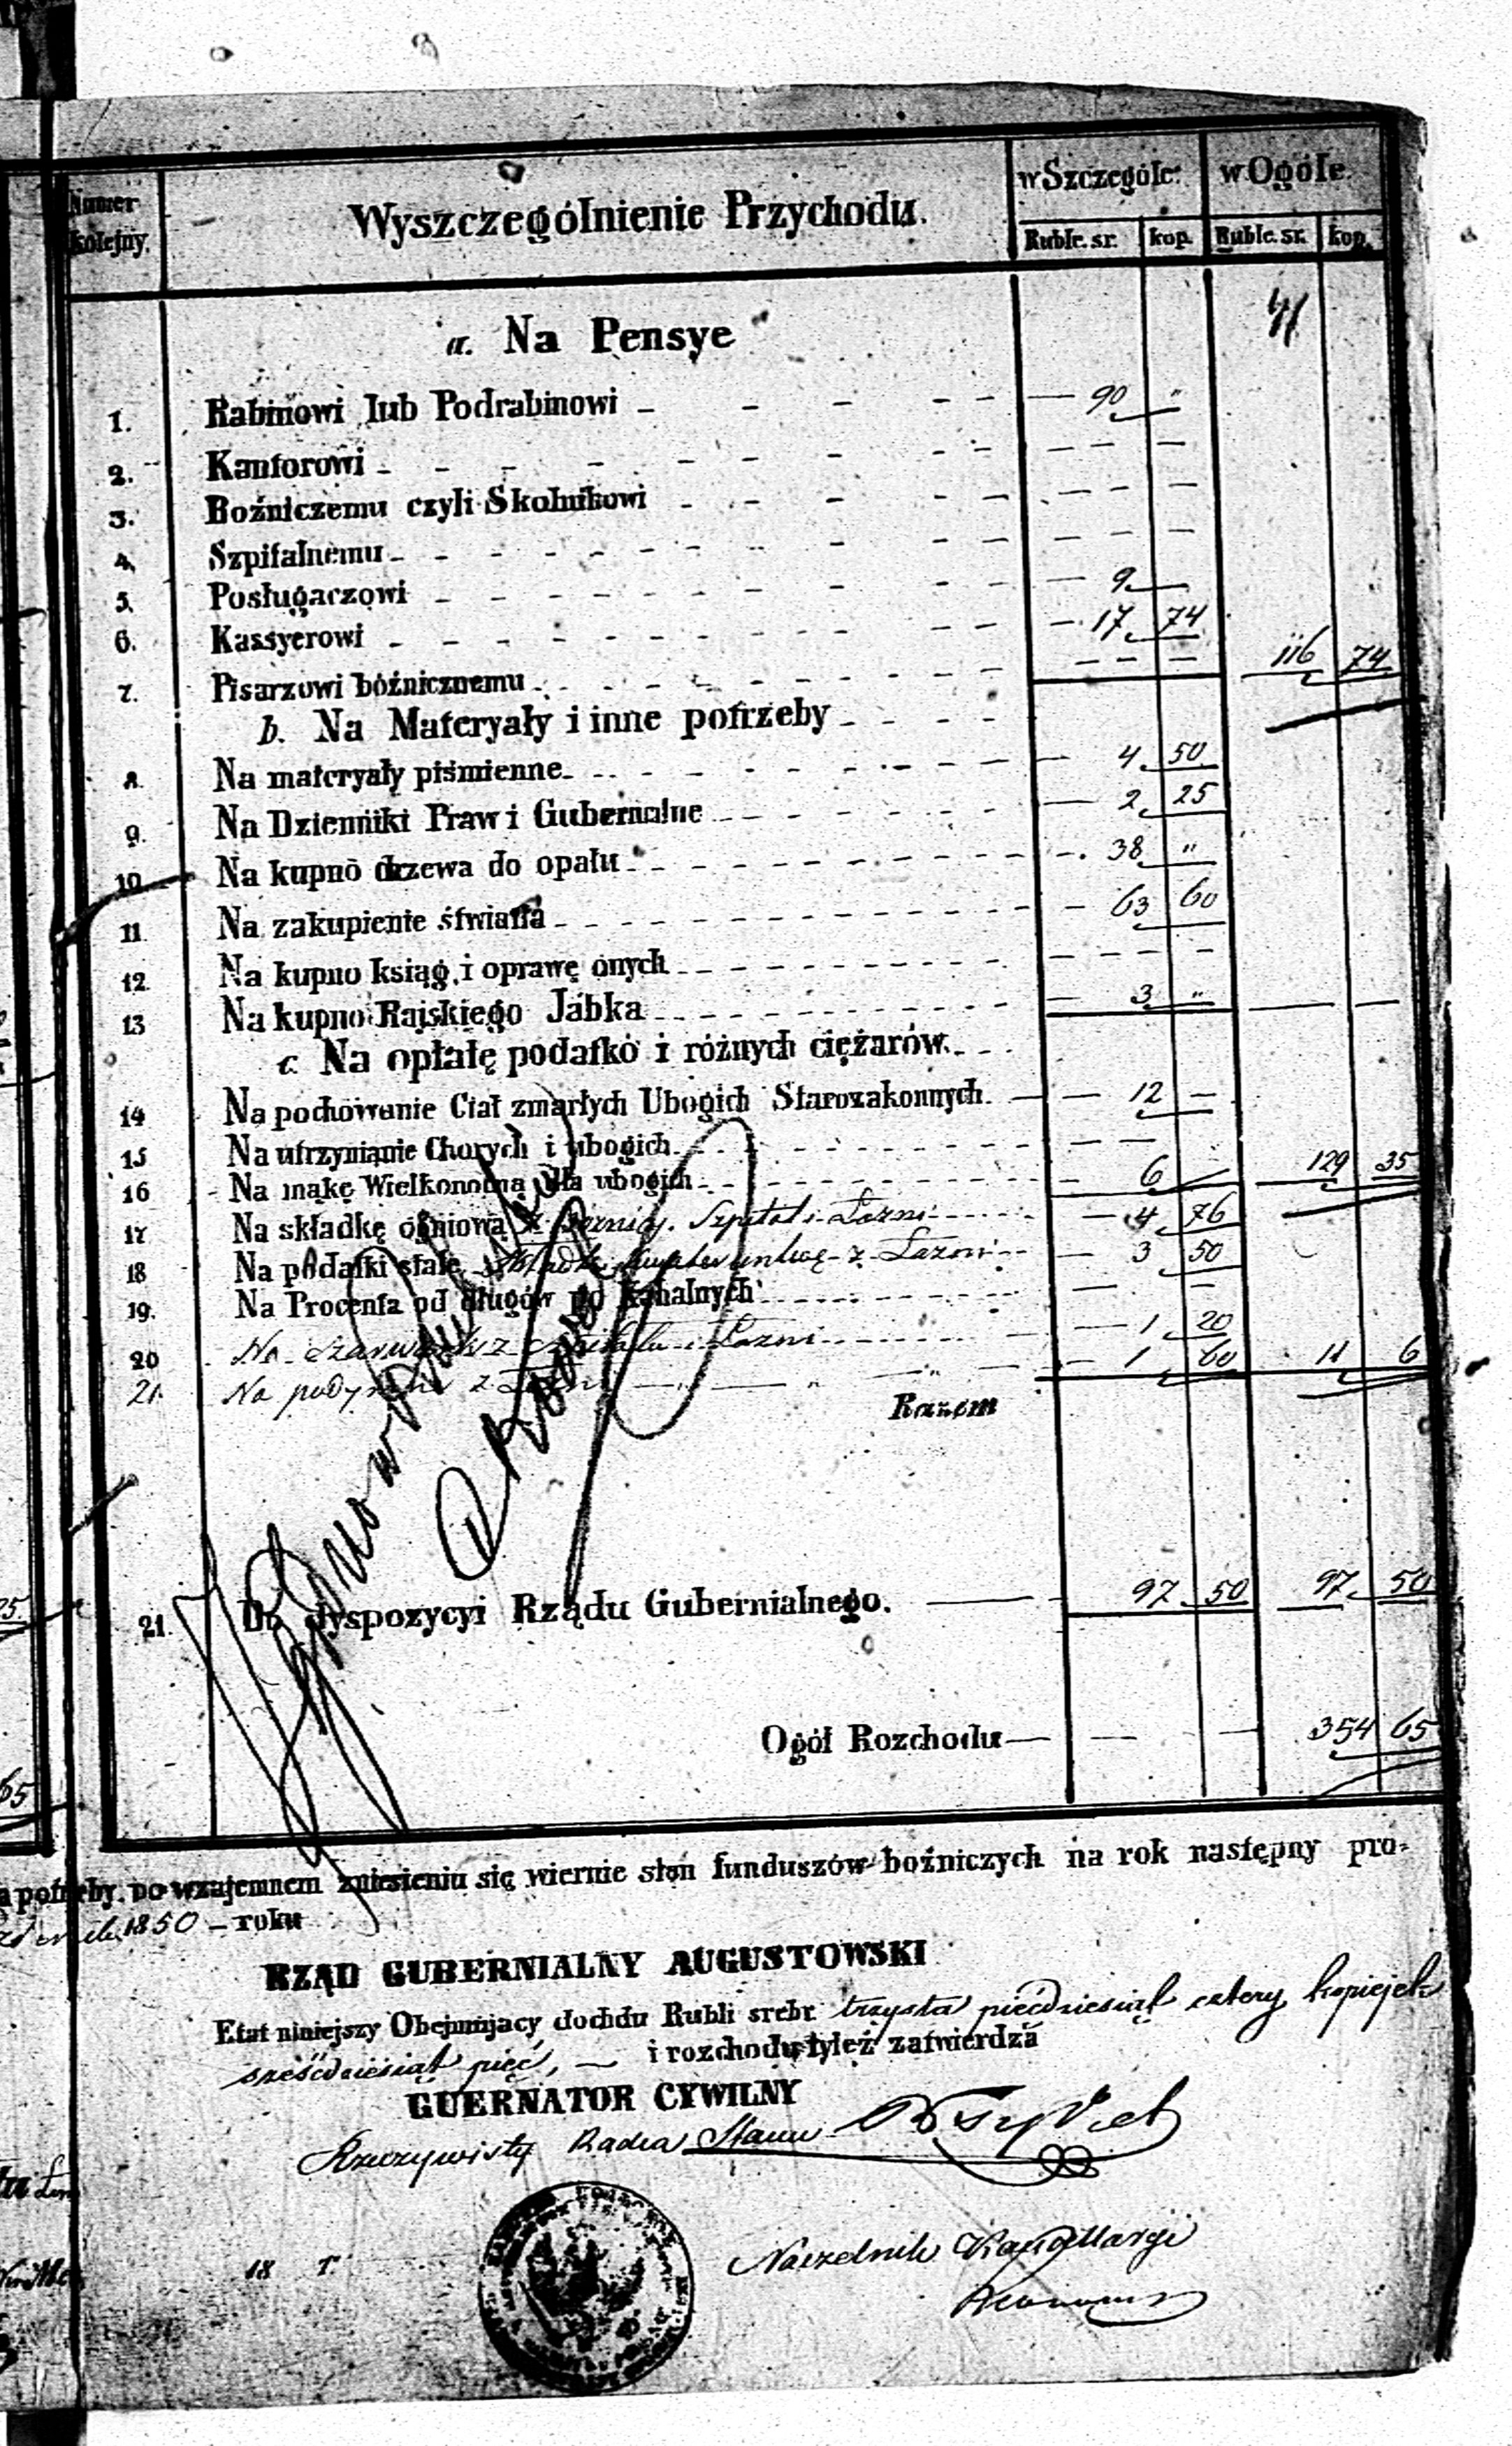 Numer kolejny. Wyszczególnienie Przychodu. w Szczególe: w Ogóle.
Ruble. sr. kop. Ruble. sr. kop.
a. Na Pensye
1. Rabinowi lub Podrabinowi - - - - - 90 "
2. Kantorowi - - - - - - - - -
3. Boźniczemu czyli Skolnikowi - - - - - - - -
4. Szpitalnemu - - - - - - - - -
5. Posługaczowi - - - - - - - - 9 —
6. Kassyerowi - - - - - - - - 17 74
7. Pisarzowi bóźnicznemu - - - - - - - - 116 74
b. Na Materyały i inne potrzeby - - - -
8. Na materyały piśmienne - - - - - - - 4 50
9. Na Dzienniki Praw i Gubernalne - - - - - 2 25
10 Na kupno drzewa do opału - - - - - - 38 "
11 Na zakupienie śfwiatła - - - - - - - 63 60
12 Na kupno ksiąg i oprawę onych - - - - - - -
13 Na kupno Rajskiego Jabka - - - - - - 3 " — —
c. Na opłatę podatkó i różnych ciężarów. - -
14 Na pochowanie Ciał zmarłych Ubogich Starozakonnych. — 12 —
15 Na utrzymianie Chorych i ubogich - - - - - -
16 Na mąkę Wielkonocną dla ubogich - - - - - 6 — 129 35
17 Na składkę ogniową z Boznicy. Szpitala i Łazni - - 4 76
18 Na podatki stałe Kwaterunkwę z Łazni - - 3 50
19. Na Procenta od długów po kahalnych - - - -
20 Na Szarwark z Szpitalu i Łazni - - - 1 20
21. Na podymne z Łazni — " — " — 1 60 11 6
Razem
21. Do dyspozycyi Rządu Gubernialnego. — 97 50 97 50
Ogół Rozchodu — — — 354 65
potrzeby. po wzajemnem zniesieniu się wiernie stan funduszów boźniczych na rok następny pro-
1850 – roku
RZĄD GUBERNIALNY AUGUSTOWSKI
Etat niniejszy Obejmnjacy dochdu Rubli srebr trzysta pięćdziesiąt cztery kopiejek
sześćdziesiąt pięć, — i rozchodu tyleż zatwierdza
GUERNATOR CYWILNY
Rzeczywisty Radca Stanu
Naczelnik Kancellaryi
18 r